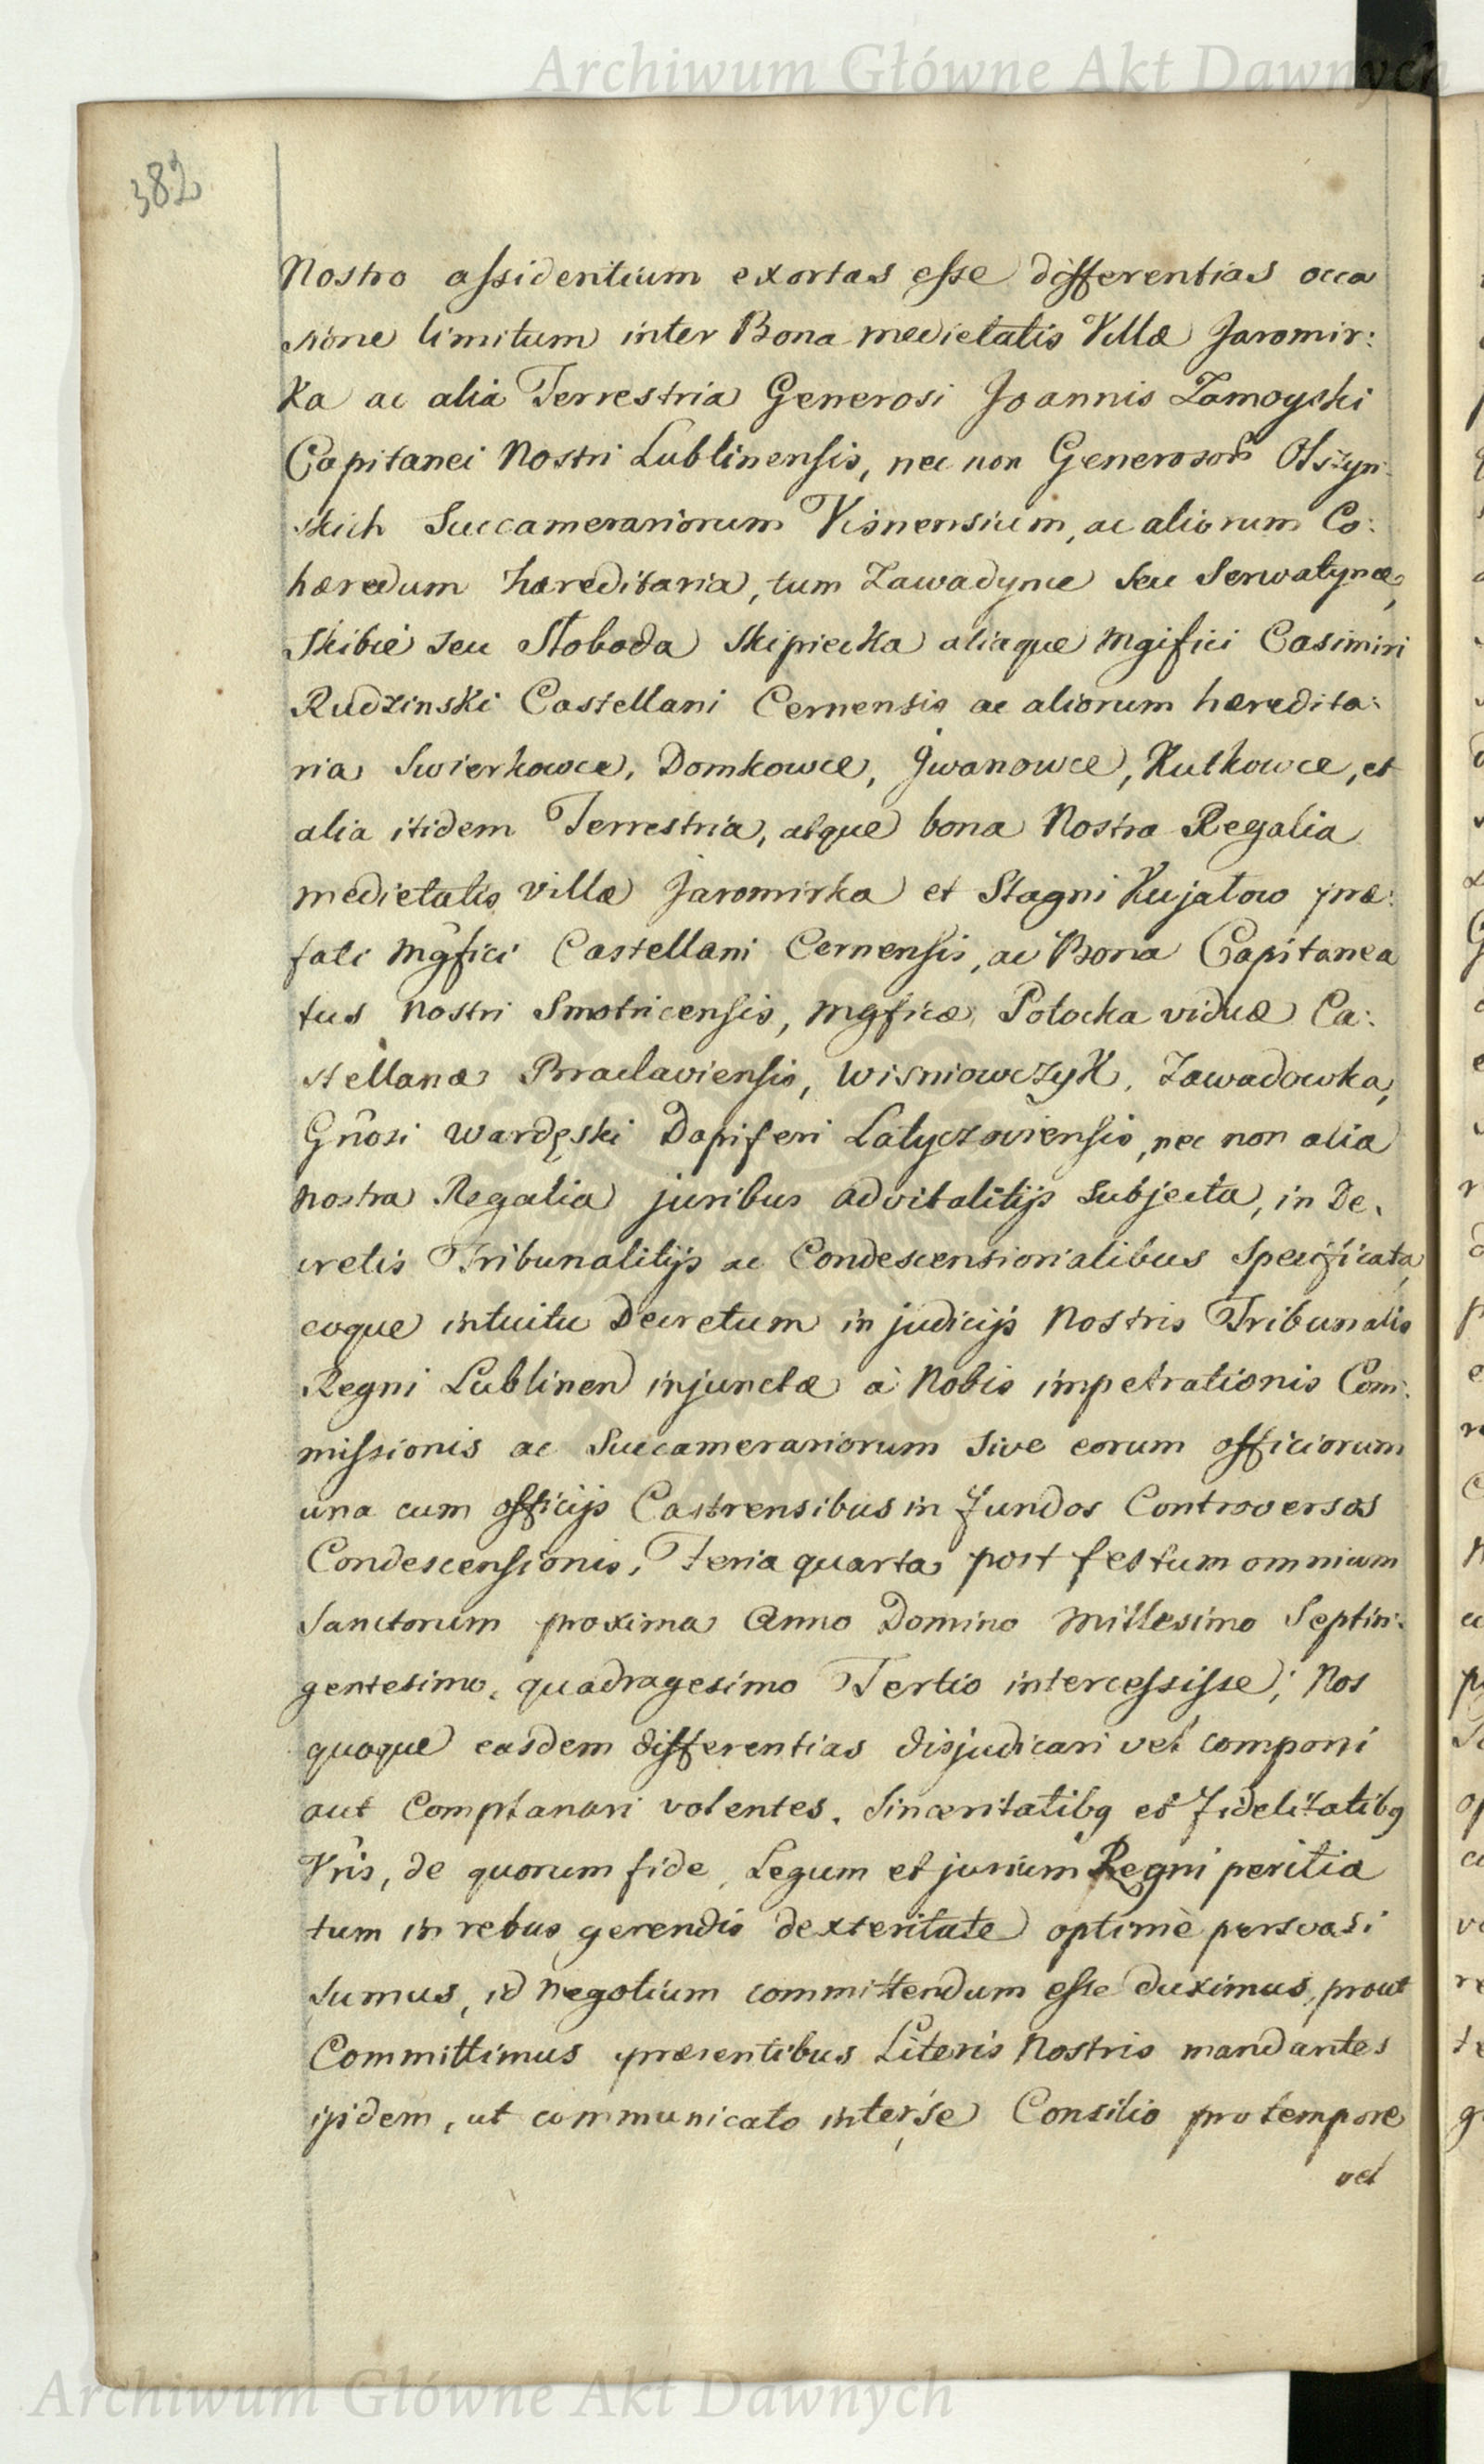 Archiwum Główne Akt Dawnych
382
Nostro assidentium exortas esse differentias occa
sione limitum inter Bona medietatis Villæ Jaromir:
ka ac alia Terrestria Generosi Joannis Zamoyski
Capitanei Nostri Lublinensis, nec non Generosor Olszyn
skich Succamerariorum Visnensium, ac aliorum Co:
hæredum hæreditaria, tum Zawadynce seu Serwatynce,
Skibce seu Słoboda Skipiecka aliaque Mgifici Casimiri
Rudzinski Castellani Cernensis ac aliorum hæredita:
ria Swierkowce, Domkowce, Jwanowce, Kutkowce, et
alia itidem Terrestria, atque bona Nostra Regalia
medietatis villæ Jaromirka et Stagni Kujatow præ:
fati Mgfici Castellani Cernensis, ac Bona Capitanea
tus Nostri Smotricensis, Mgficæ Potocka viduæ Ca:
stellanæ Braclaviensis, Wisniowczyk, Zawadowka,
Gnosi Wardęski Dapiferi Latyczoviensis, nec non alia
nostra Regalia juribus advitalitijs subjecta, in De:
cretis Tribunalitijs ac Condescensionalibus Specificata,
eoque intuitu Decretum in judicijs Nostris Tribunalis
Regni Lublinen injunctæ à Nobis impetrationis Com:
missionis ac Succamerariorum sive eorum officiorum
una cum officijs Castrensibus in fundos Controversos
Condescensionis, Feria quarta post festum omnium
Sanctorum proxima Anno Domino Millesimo Septin:
gentesimo, quadragesimo Tertio intercessisse; Nos
quoque easdem differentias disjudicari vel componi
aut Complanari volentes. Sinceritatibq et Fidelitatibq
Vris, de quorum fide, Legum et jurium Regni peritia
tum in rebus gerendis dexteritate optimè persvasi
sumus, id negotium committendum esse duximus, prout
Committimus præsentibus Literis Nostris mandantes
ijsdem, ut communicato inter se Consilio pro tempore
vel
Archiwum Główne Akt Dawnych